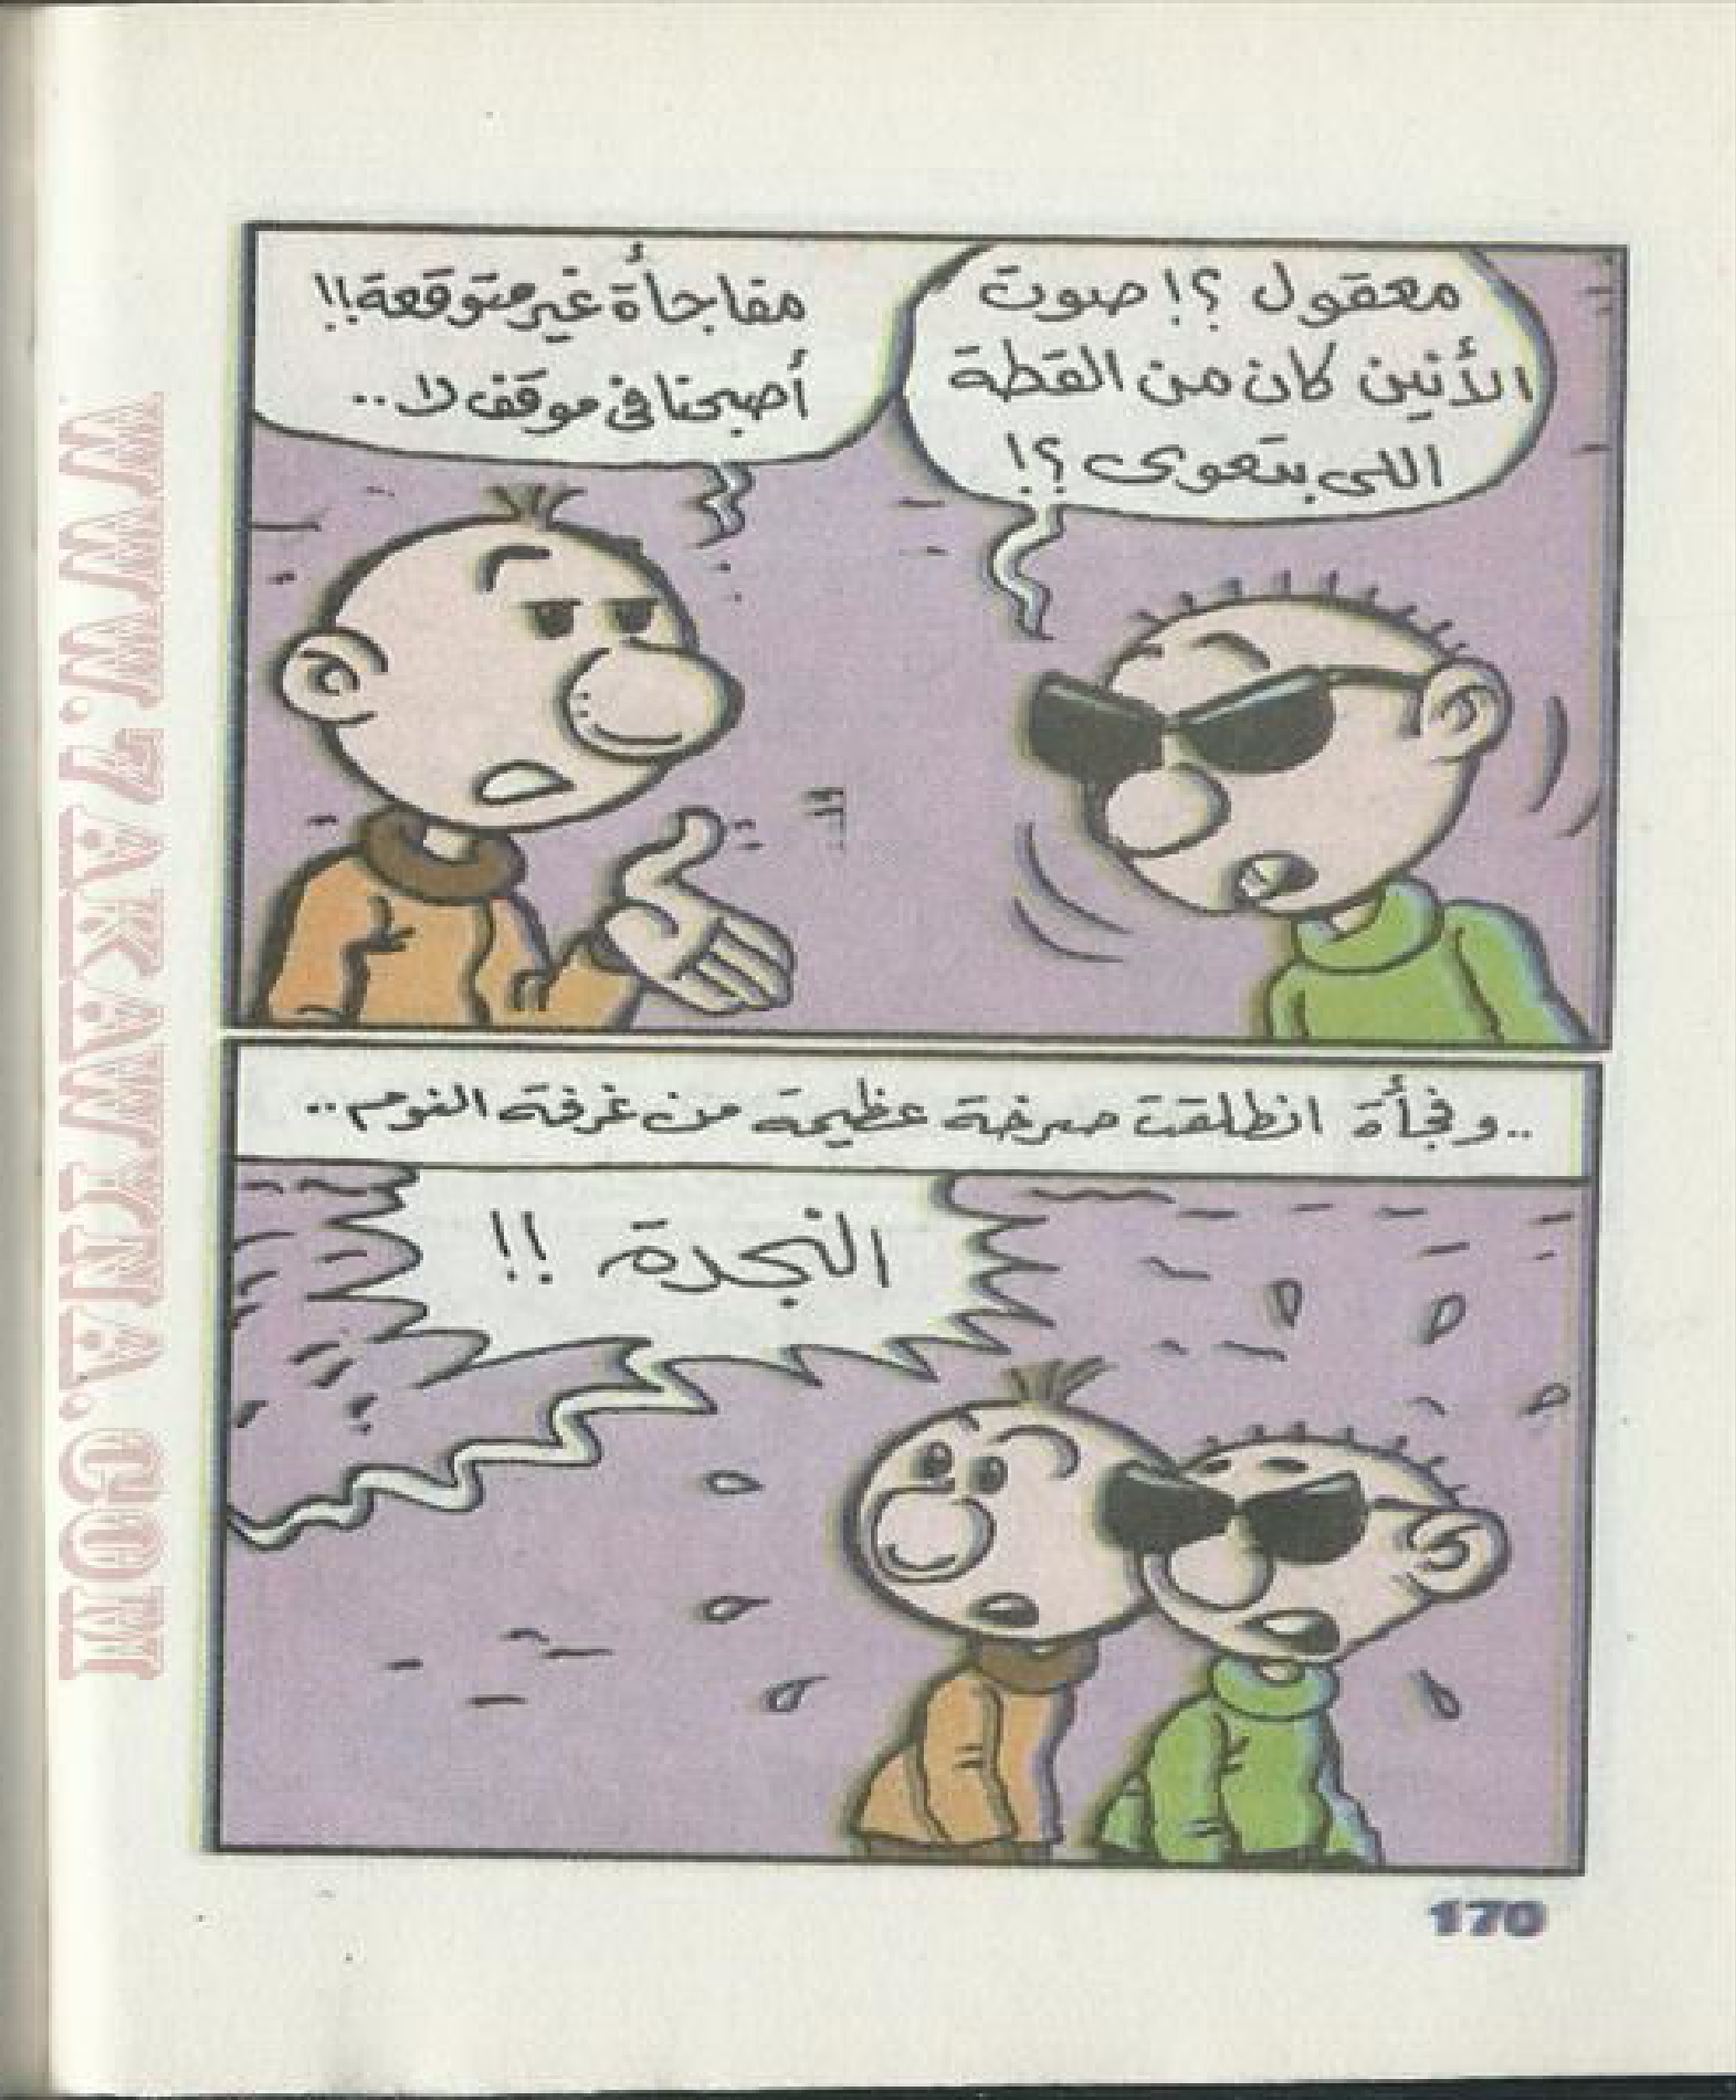 معقول ؟! صوت
الأنين كان من القطة
اللى بتعوى ؟!
مفاجأة غير متوقعة !!
أصبحنا فى موقف لا ..
.. وفجأة انطلقت صرخة عظيمة من غرفة النوم ..
النجدة !!
170
WWW.7AKAWITNA.COM